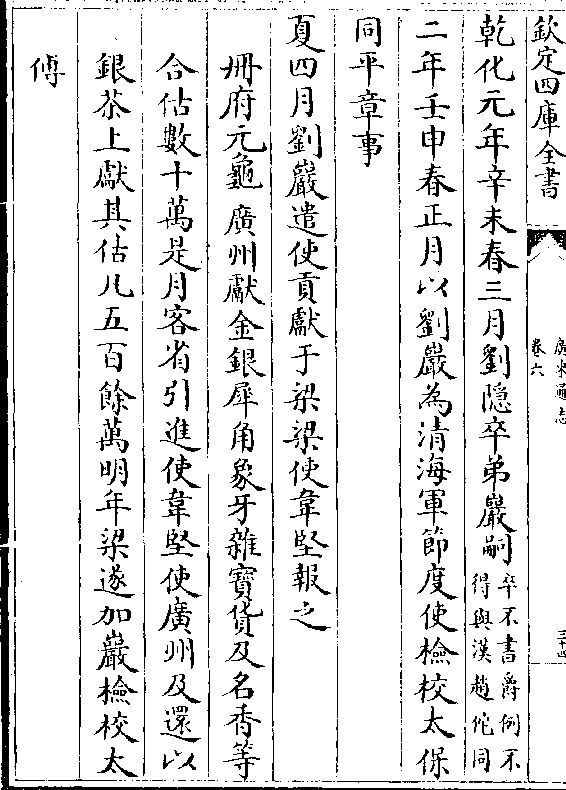 欽定四庫全書
廣東通志
卷六
三十四
乾化元年辛未春三月劉隱卒弟巖嗣
卒不書爵例不
得與漢趙佗同
二年壬申春正月以劉巖為清海軍節度使檢校太保
同平章事
夏四月劉巖遣使貢獻于梁梁使韋堅報之
冊府元龜廣州獻金銀犀角象牙雜寶貨及名香等
合估數十萬是月客省引進使韋堅使廣州及還以
銀茶上獻其估凡五百餘萬明年梁遂加巖檢校太
傅